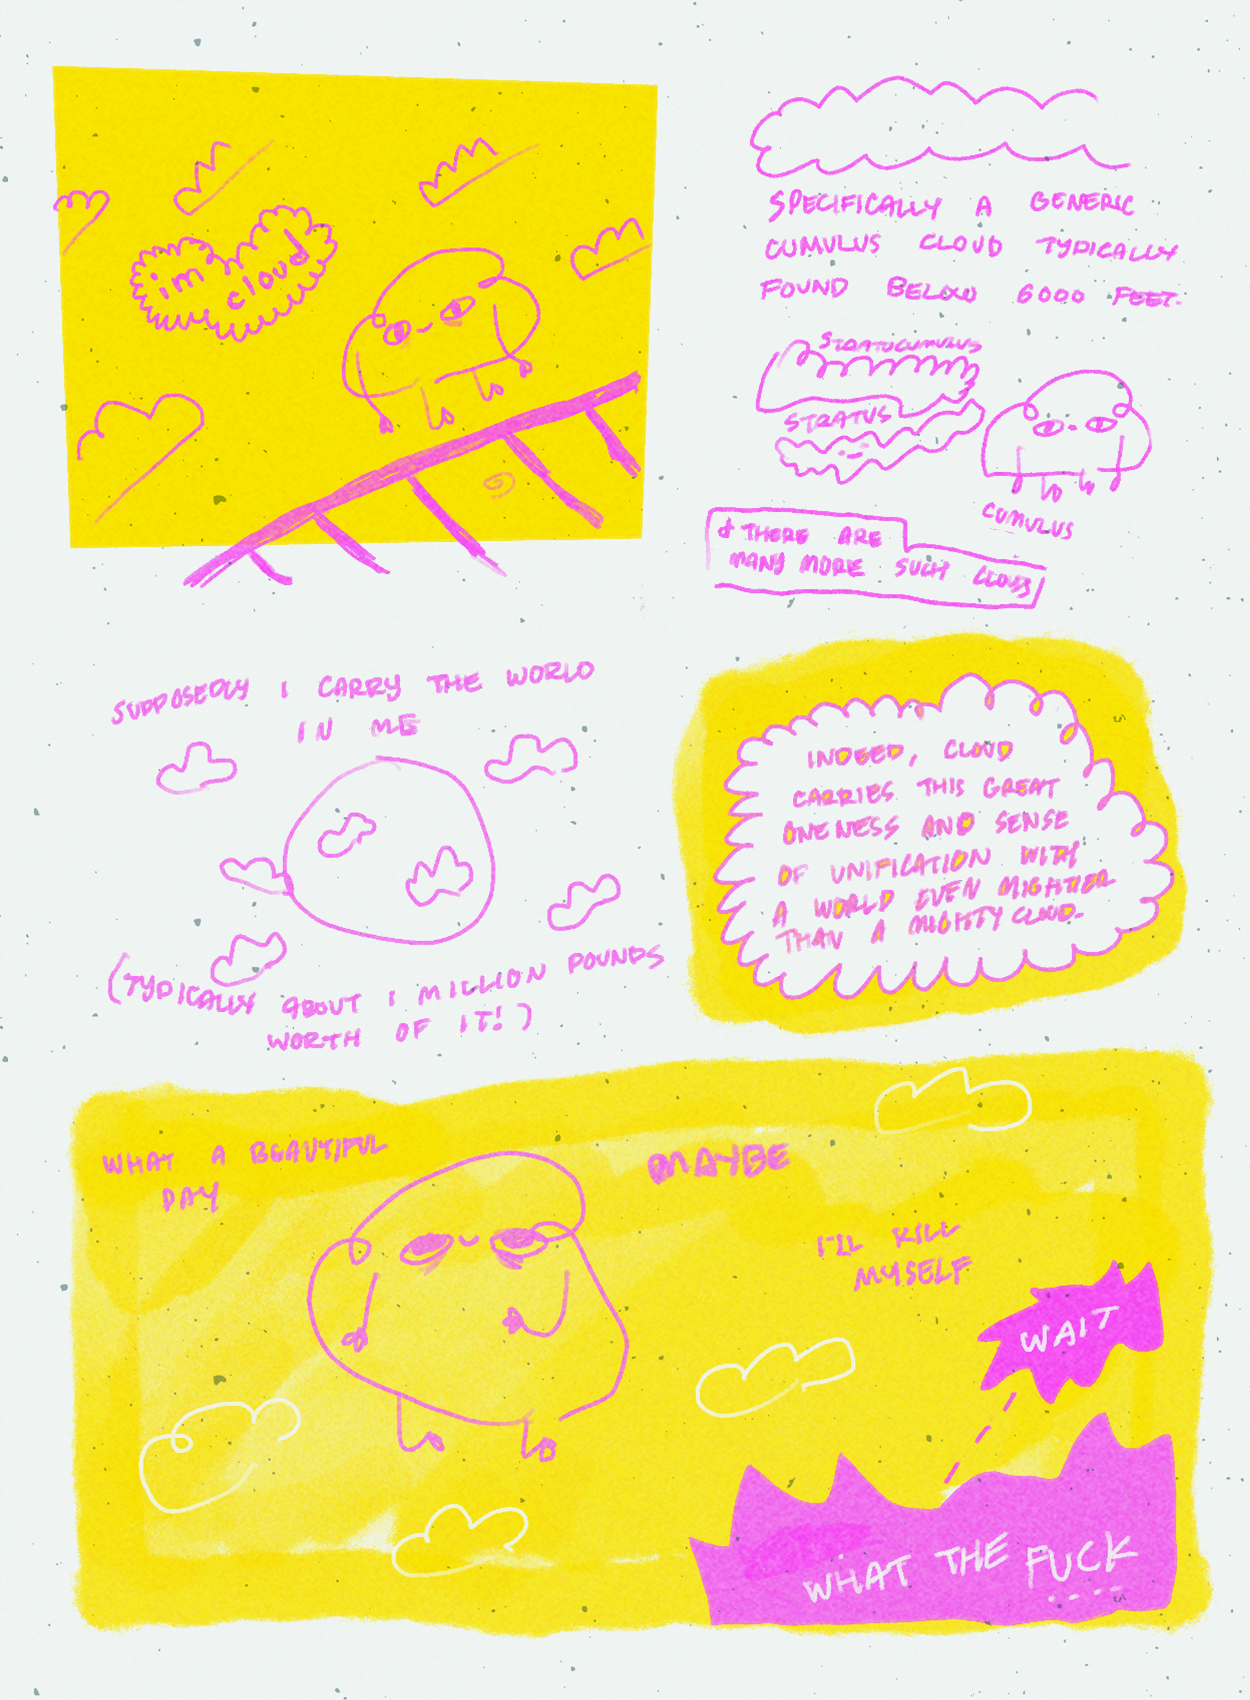 im
cloud
SPECIFICALLY A GENERIC
CUMULUS CLOUD TYPICALLY
FOUND BELOW 6000 FEET.
STRATOCUMULUS
STRATUS
CUMULUS
& THERE ARE
MANY MORE SUCH CLOUDS
SUPPOSEDLY I CARRY THE WORLD
IN ME
(TYPICALLY ABOUT 1 MILLION POUNDS
WORTH OF IT!)
INDEED, CLOUD
CARRIES THIS GREAT
ONENESS AND SENSE
OF UNIFICATION WITH
A WORLD EVEN MIGHTIER
THAN A MIGHTY CLOUD.
WHAT A BEAUTIFUL
DAY
MAYBE
I'LL KILL
MYSELF
WAIT
WHAT THE FUCK